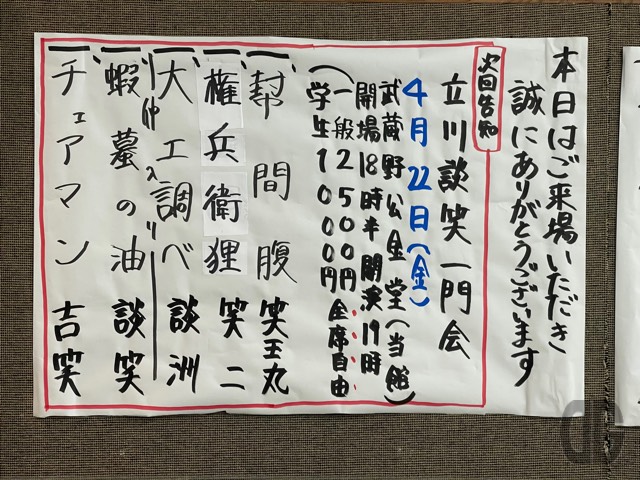 本日はご来場いただき
誠にありがとうございます
次回告知
立川談笑一門会
4月22日(金)
武蔵野公会堂(当館)
開場18時半開演19時
(一般2500円
学生1000円
全席自由
一、幇間腹 笑王丸
一、権兵衛狸 笑二
一、大工調べ 談洲
仲入り
一、蝦蟇の油 談笑
一、チェアマン 吉笑